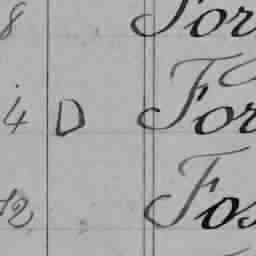 8 For
4 D For
12 Fos